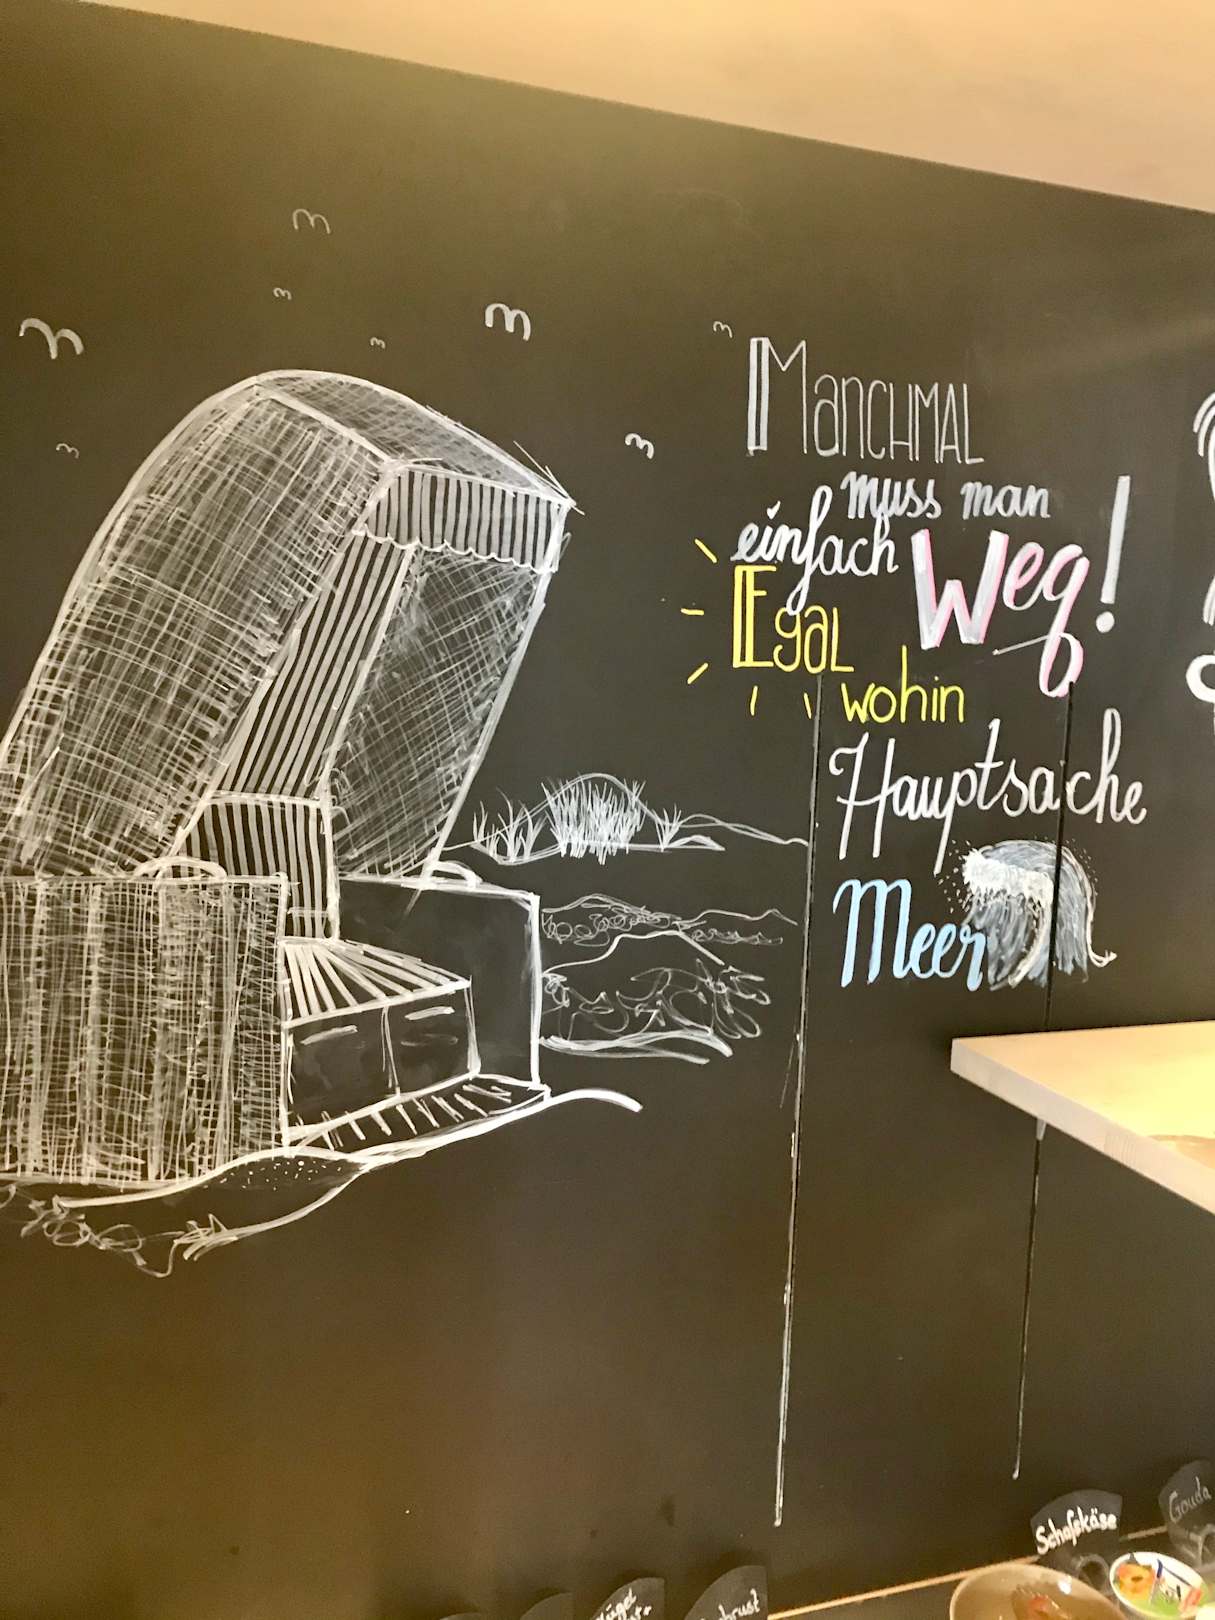 Manchmal
muss man
einfach Weg!
Egal
wohin
Hauptsache
Meer
Schafskäse
Gouda